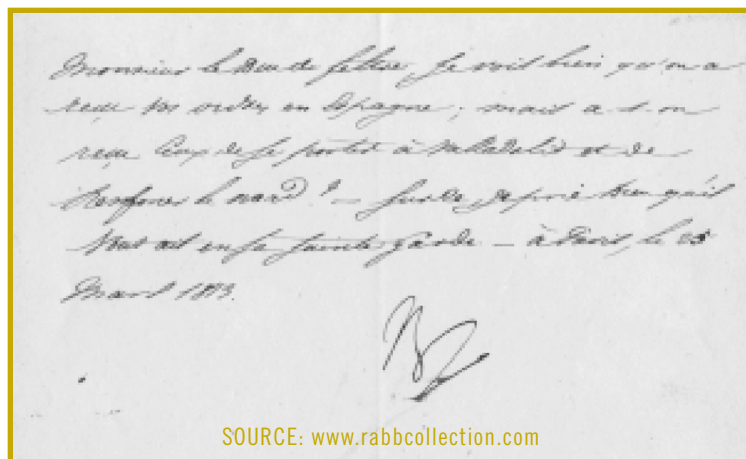 Monsieur le Duc de Feltre, je vois bien qu'on a
reçu vos ordres en Espagne; mais a-t-on
reçu ceux de se porter à Valladolid et de
renforcer le nord? — Sur ce je prie Dieu qu'il
vous ait en sa sainte garde — à Paris, le 25
Mars 1813.
SOURCE: www.rabbcollection.com